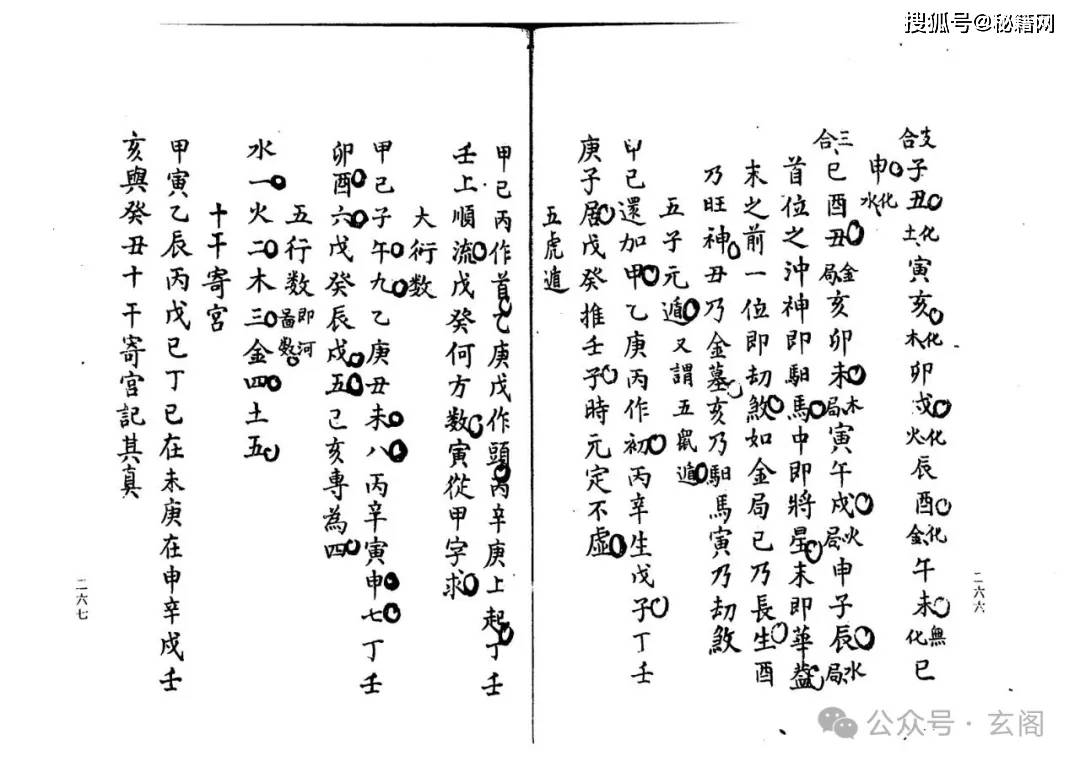 搜狐号@秘籍网
支合 子丑化土 寅亥化木 卯戌化火 辰酉化金 午未無化 巳
申化水
三合 巳酉丑金局 亥卯未木局 寅午戌火局 申子辰水局
首位之沖神即馹馬中即將星末即華蓋
末之前一位即刧煞如金局巳乃長生酉
乃旺神丑乃金墓亥乃馹馬寅乃刧煞
五子元遁又謂五鼠遁
甲己還加甲乙庚丙作初丙辛生戊子丁壬
庚子居戊癸推壬子時元定不虛
五虎遁
二六六
甲己丙作首乙庚戊作頭丙辛庚上起丁壬
壬上順流戊癸何方数寅從甲字求
大衍数
甲己子午九乙庚丑未八丙辛寅申七丁壬
卯酉六戊癸辰戌五巳亥專為四
五行数即河圖数
水一火二木三金四土五
十干寄宮
甲寅乙辰丙戊巳丁己在未庚在申辛戌壬
亥與癸丑十干寄宮記其真
二六七
公众号·玄阁